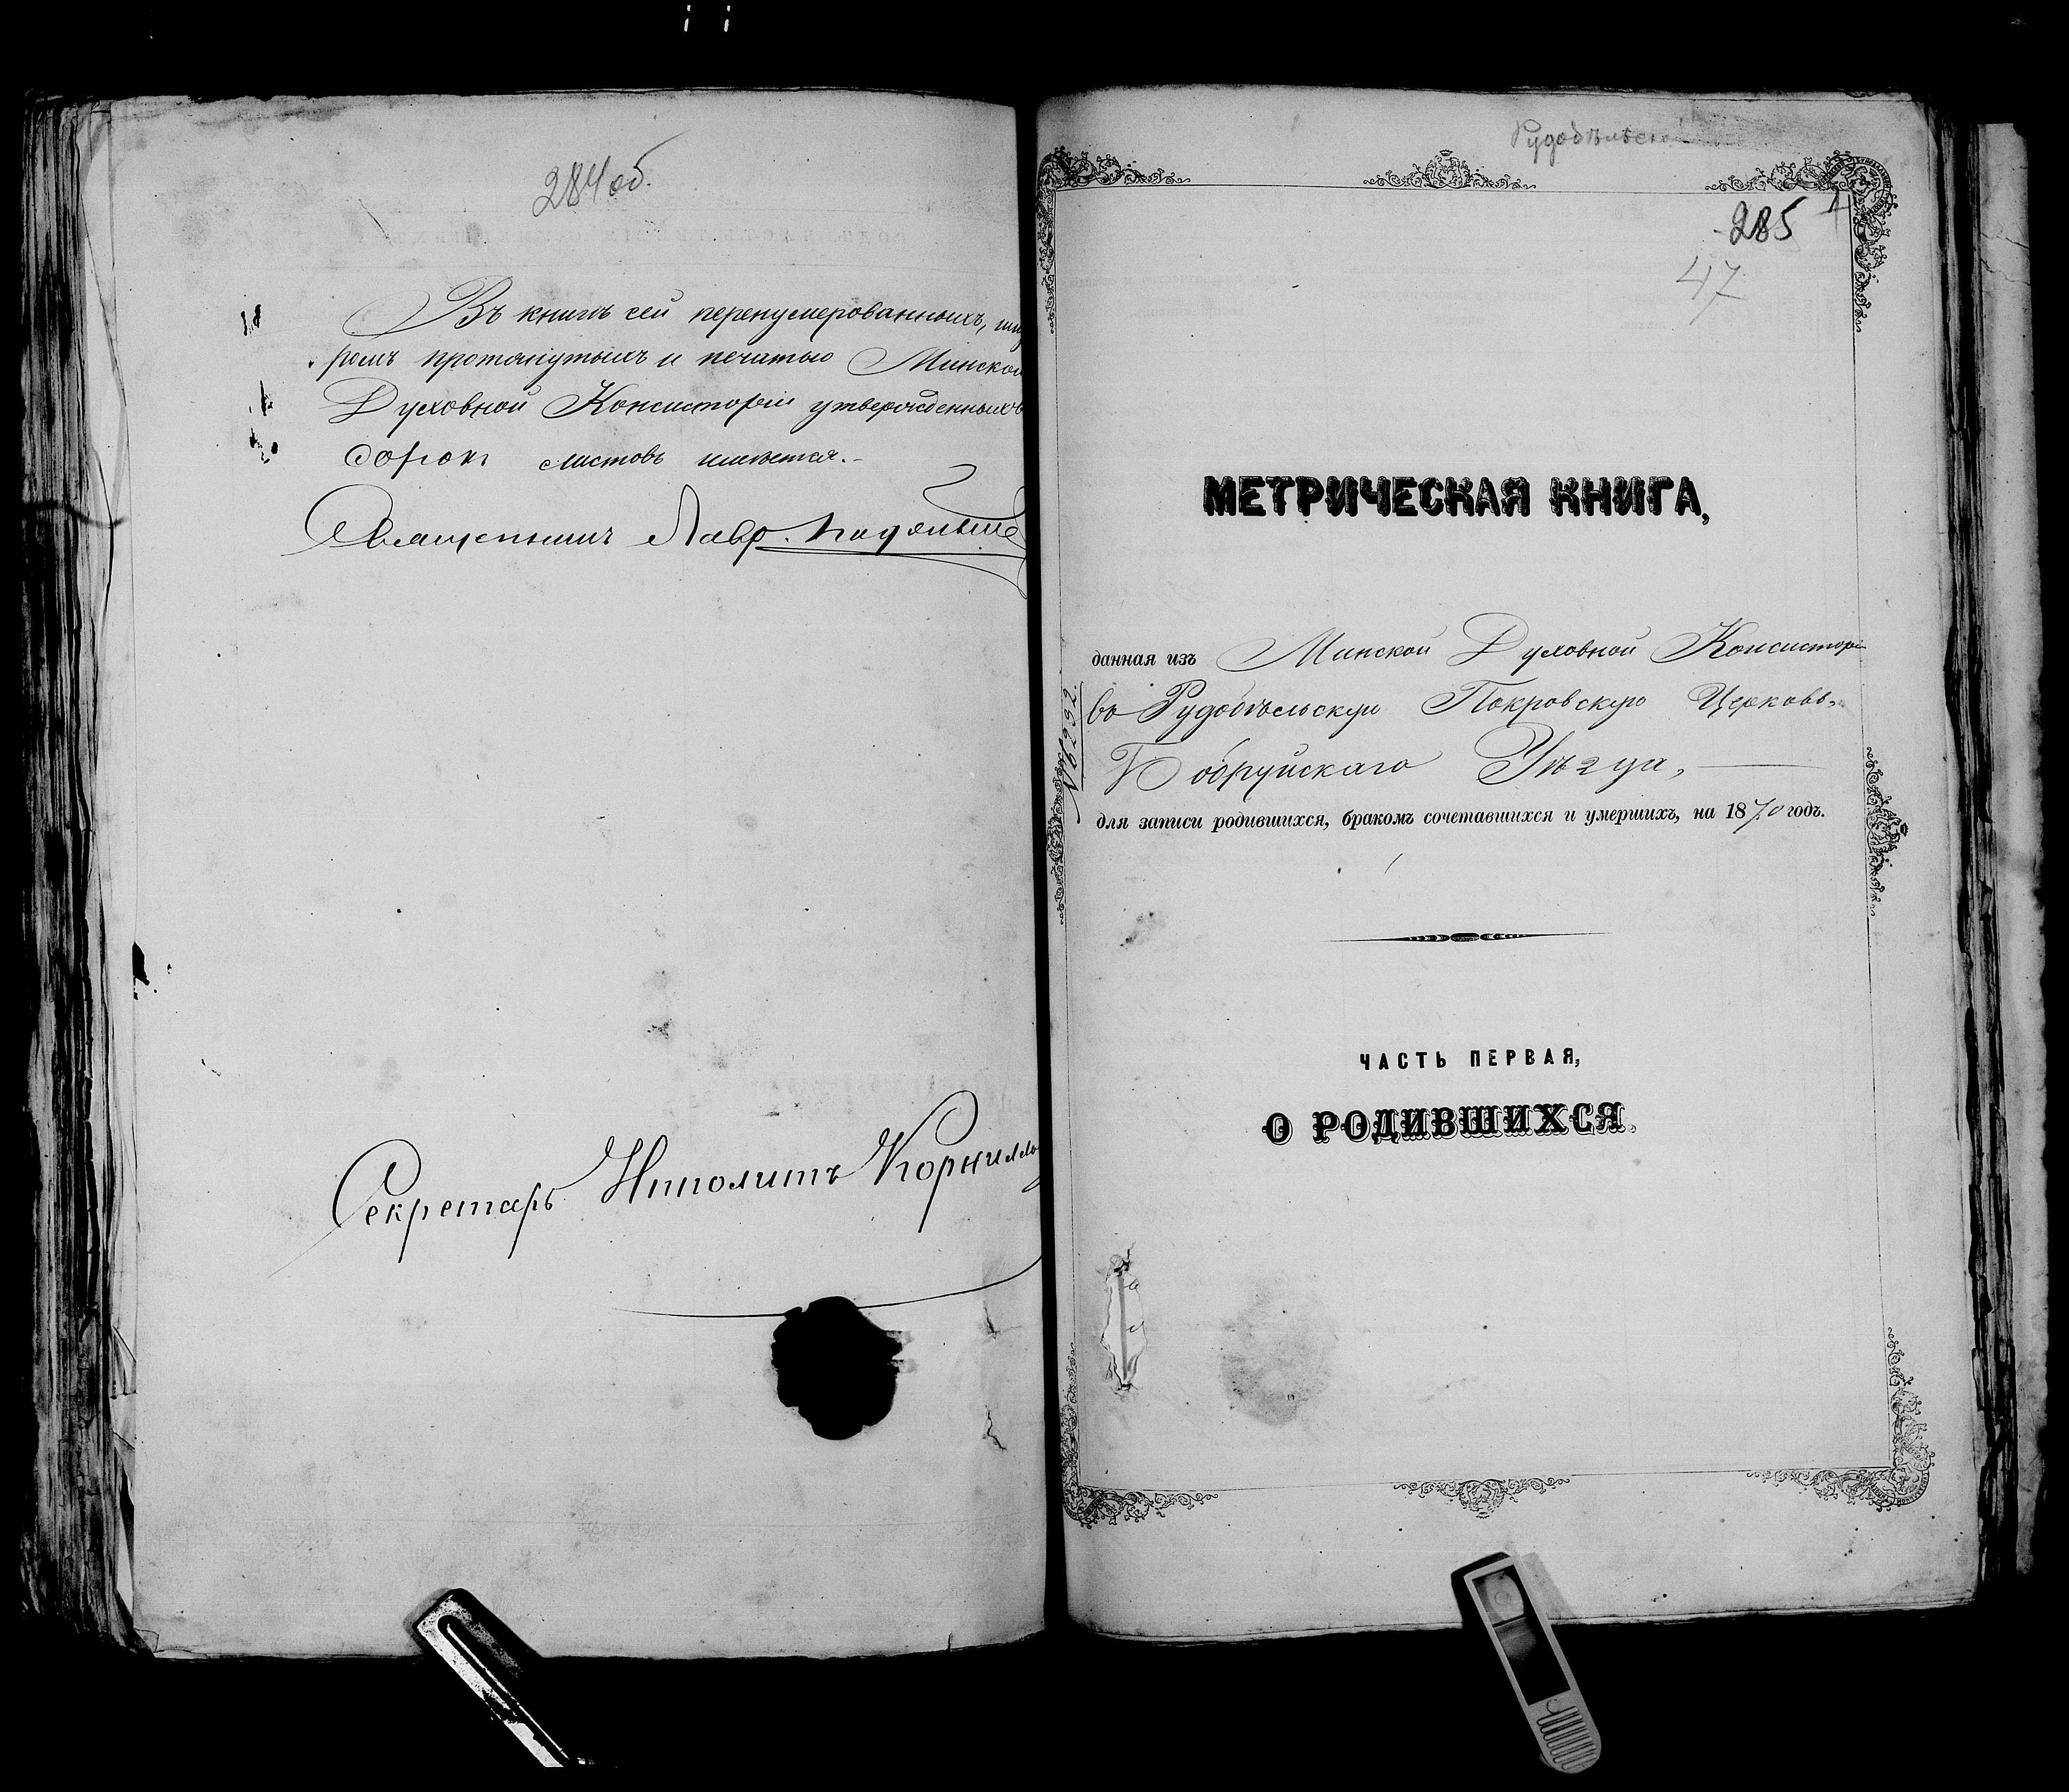 284 об.
Въ книгѣ сей перенумерованныхъ, шну
ромъ протянутыхъ и печатью Минской
Духовной Консисторіи утвержденныхъ
сорокъ листовъ имѣется.-
Священникъ Лавр.
Секретарь Ипполитъ Корнилло
Рудобѣльской
285
1
47
МЕТРИЧЕСКАЯ КНИГА,
данная изъ Минской Духовной Консисторіи
въ Рудобѣльскую Покровскую Церковь,
Бобруйскаго Уѣзда,
для записи родившихся, бракомъ сочетавшихся и умершихъ, на 1870 годъ.
№ 6292.
ЧАСТЬ ПЕРВАЯ,
О РОДИВШИХСЯ.